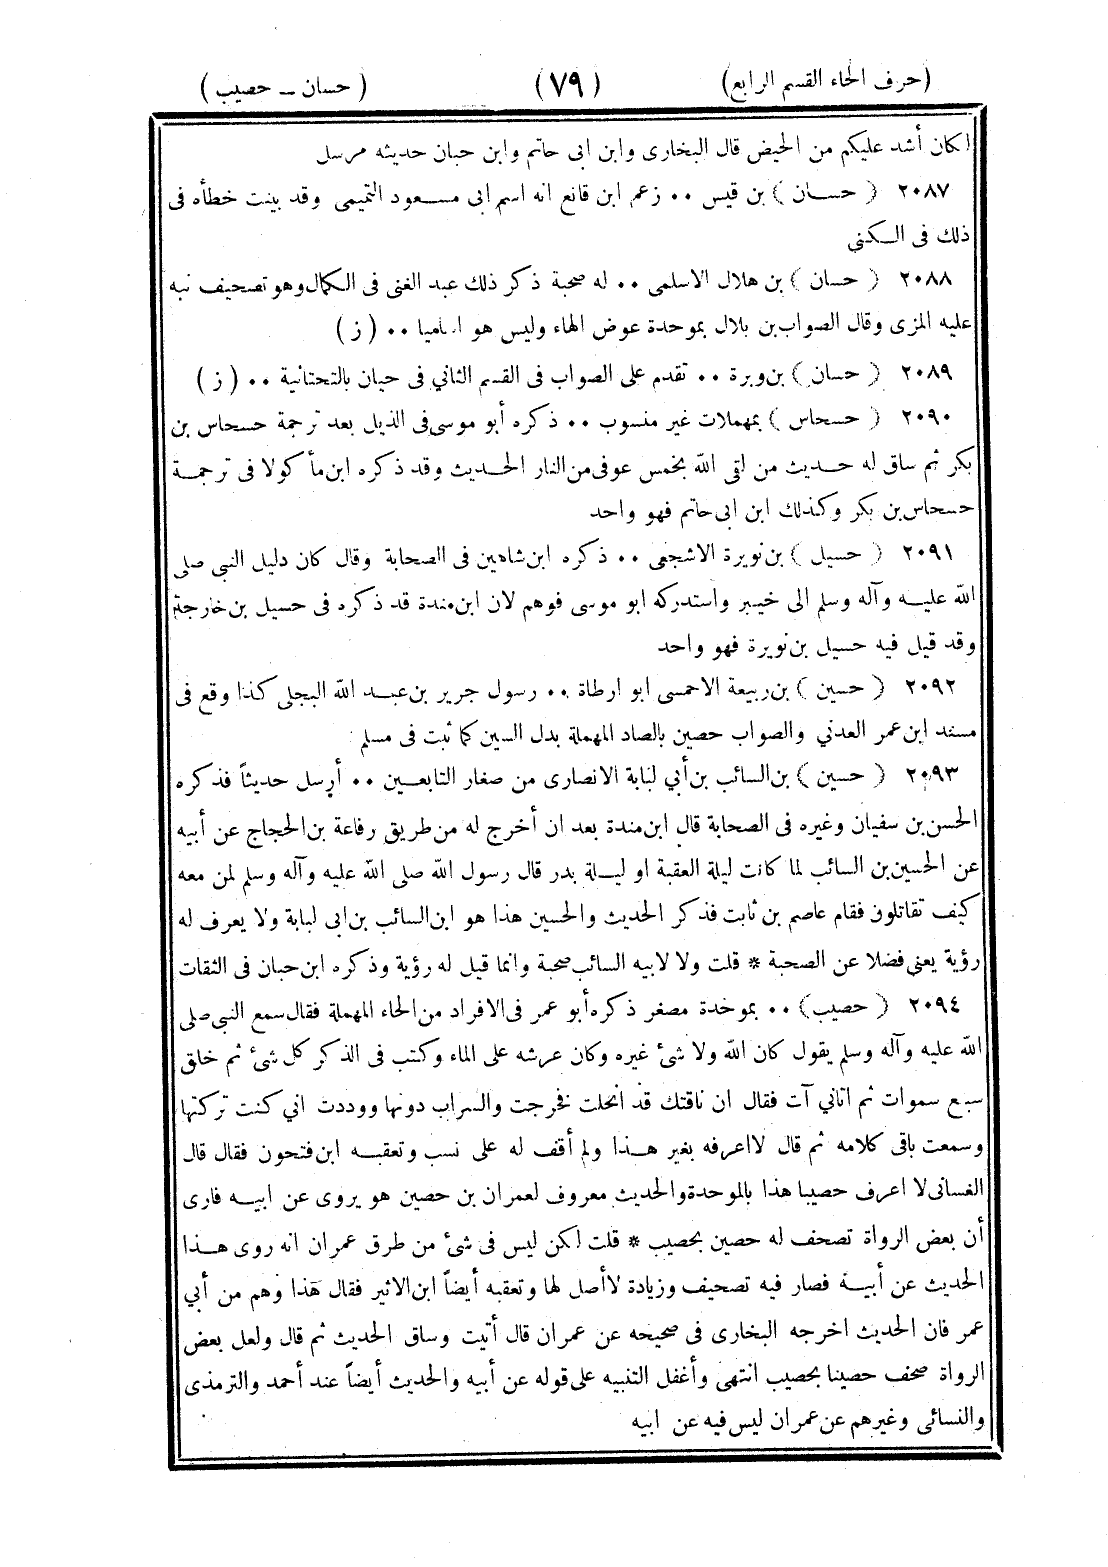 (حرف الحاء القسم الرابع) (٧٩) (حسان ـ حصيب)
لكان أشد عليكم من الحيض قال البخارى وابن ابى حاتم وابن حبان حديثه مرسل
٢٠٨٧ (حسان) بن قيس ٠٠ زعم ابن قانع انه اسم ابى مسعود التميمى وقد بينت خطأه فى
ذلك فى الكنى
٢٠٨٨ (حسان) بن هلال الاسلمى ٠٠ له صحبة ذكر ذلك عبد الغنى فى الكمال وهو تصحيف نبه
عليه المزى وقال الصواب بن بلال بموحدة عوض الهاء وليس هو اسلميا ٠٠ (ز)
٢٠٨٩ (حسان) بن وبرة ٠٠ تقدم على الصواب فى القسم الثاني فى حيان بالتحتانية ٠٠ (ز)
٢٠٩٠ (حسحاس) بمهملات غير منسوب ٠٠ ذكره أبو موسى فى الذيل بعد ترجمة حسحاس بن
بكر ثم ساق له حديث من لقى الله بخمس عوفى من النار الحديث وقد ذكره ابن مأكولا فى ترجمة
حسحاس بن بكر وكذلك ابن ابى حاتم فهو واحد
٢٠٩١ (حسيل) بن نويرة الاشجعى ٠٠ ذكره ابن شاهين فى الصحابة وقال كان دليل النبى صلى
الله عليه وآله وسلم الى خيبر واستدركه ابو موسى فوهم لان ابن مندة قد ذكره فى حسيل بن خارجة
وقد قيل فيه حسيل بن نويرة فهو واحد
٢٠٩٢ (حسين) بن ربيعة الاحمسى ابو ارطاة ٠٠ رسول جرير بن عبد الله البجلى كذا وقع فى
مسند ابن عمر العدني والصواب حصين بالصاد المهملة بدل السين كما ثبت فى مسلم
٢٠٩٣ (حسين) بن السائب بن أبي لبابة الانصارى من صغار التابعين ٠٠ أرسل حديثاً فذكره
الحسن بن سفيان وغيره فى الصحابة قال ابن مندة بعد ان أخرج له من طريق رفاعة بن الحجاج عن أبيه
عن الحسين بن السائب لما كانت ليلة العقبة او ليلة بدر قال رسول الله صلى الله عليه وآله وسلم لمن معه
كيف تقاتلون فقام عاصم بن ثابت فذكر الحديث والحسين هذا هو ابن السائب بن ابى لبابة ولا يعرف له
رؤية يعني فضلا عن الصحبة * قلت ولا لابيه السائب صحبة وانما قيل له رؤية وذكره ابن حبان فى الثقات
٢٠٩٤ (حصيب) ٠٠ بموحدة مصغر ذكره أبو عمر فى الافراد من الحاء المهملة فقال سمع النبى صلى
الله عليه وآله وسلم يقول كان الله ولا شئ غيره وكان عرشه على الماء وكتب فى الذكر كل شئ ثم خلق
سبع سموات ثم اتاني آت فقال ان ناقتك قد انحلت فخرجت والسراب دونها ووددت اني كنت تركتها
وسمعت باقى كلامه ثم قال لا اعرفه بغير هذا ولم أقف له على نسب وتعقبه ابن فتحون فقال قال
الغسانى لا اعرف حصيبا هذا بالموحدة والحديث معروف لعمران بن حصين هو يروى عن ابيه فارى
أن بعض الرواة تصحف له حصين بحصيب * قلت لكن ليس فى شئ من طرق عمران انه روى هذا
الحديث عن أبية فصار فيه تصحيف وزيادة لاأصل لها وتعقبه أيضاً ابن الاثير فقال هذا وهم من أبي
عمر فان الحديث اخرجه البخارى فى صحيحه عن عمران قال أتيت وساق الحديث ثم قال ولعل بعض
الرواة صحف حصينا بحصيب انتهى وأغفل التنبيه على قوله عن أبيه والحديث أيضاً عند أحمد والترمذى
والنسائى وغيرهم عن عمران ليس فيه عن ابيه